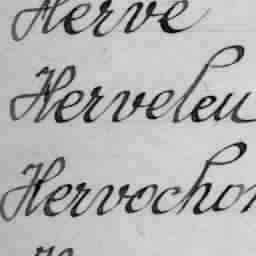 Herve
Herveleu
Hervochon